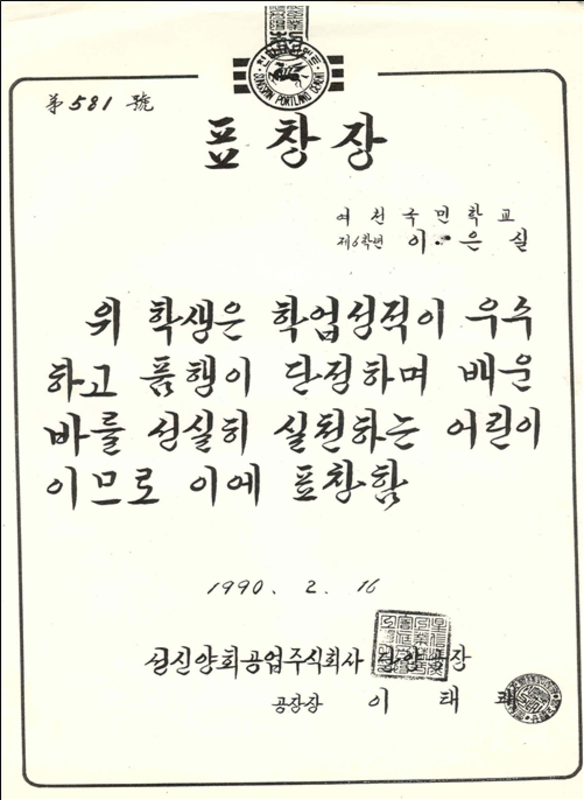 SUNGSHIN PORTLAND CEMENT
第 581 號
표창장
여천국민학교
제6학년 이 은 실
위 학생은 학업성적이 우수
하고 품행이 단정하며 배운
바를 성실히 실천하는 어린이
이므로 이에 표창함
1990. 2. 16
성신양회공업주식회사 단양공장
공장장 이 태